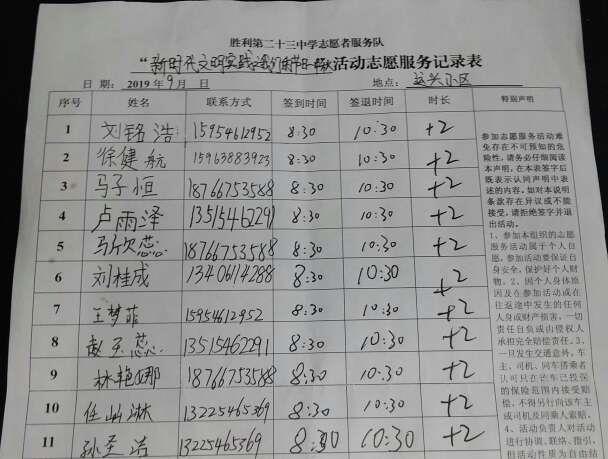 胜利第二十三中学志愿者服务队
“新时代文明实践 活动志愿服务记录表
日 期: 2019 年 9 月 日 地点: 小区
序号 姓名 联系方式 签到时间 签退时间 时长 特别声明
1 刘铭浩 15954612952 8:30 10:30 +2
2 徐健航 15963883923 8:30 10:30 +2
3 马子恒 18766753588 8:30 10:30 +2
4 卢雨泽 13515462291 8:30 10:30 +2
5 马欣蕊 18766753588 8:30 10:30 +2
6 刘桂成 13406114288 8:30 10:30 +2
7 王梦菲 15954612952 8:30 10:30 +2
8 赵玉蕊 13515462291 8:30 10:30 +2
9 林艳娜 18766753588 8:30 10:30 +2
10 任 淋 13225465369 8:30 10:30 +2
11 孙圣洁 13225465369 8:30 10:30 +2
参加志愿服务活动难
免存在不可预知的危
险性,请务必仔细阅读
本声明,在本表签字后
既表示认同声明中表
述的内容,如对本说明
条款存在异议或不能
接受,请拒绝签字并退
出活动。
1、参加本组织的志愿
服务活动属于个人自
愿,参加活动要保证自
身安全,保护好个人财
物。2、因个人身体原
因及在参加活动或在
往返途中发生的任何
人身或财产损害,一切
责任自负或由侵权人
承担完全赔偿责任。3、
一旦发生交通意外,车
主、司机、同车搭乘者
认可只在已车已投保
的保险范围内接受赔
偿,不得另行向该车主
或司机及同乘人索赔。
4、活动负责人对活动
进行协调、联络、指引,
但活动性质为自由结